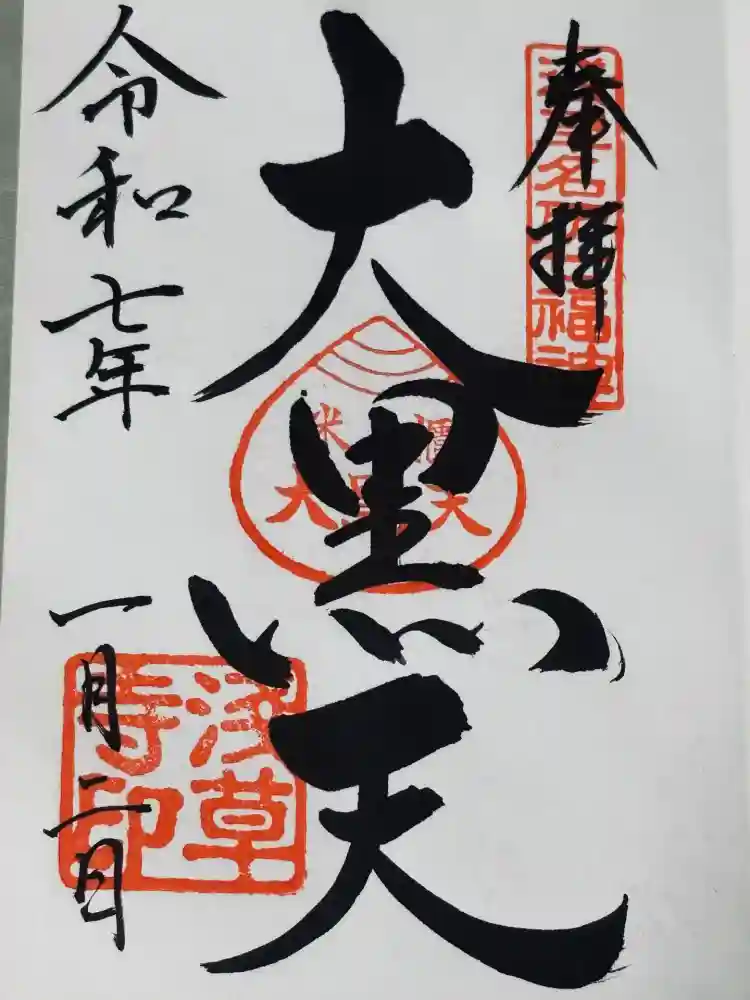 奉拝
浅草名所七福神
大黒天
米櫃
大黒天
令和七年
一月二日
浅草
寺印